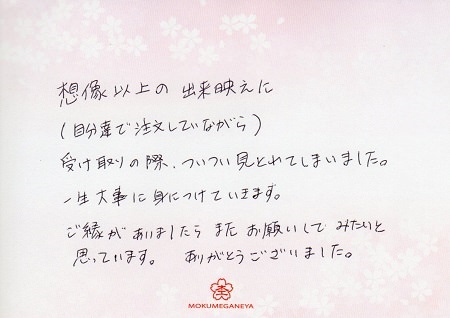 想像以上の 出来映えに
(自分達で注文していながら)
受け取りの際、ついつい見とれてしまいました。
一生大事に身につけていきます。
ご縁がありましたら また お願いしてみたいと
思っています。 ありがとうございました。
杢
MOKUMEGANEYA